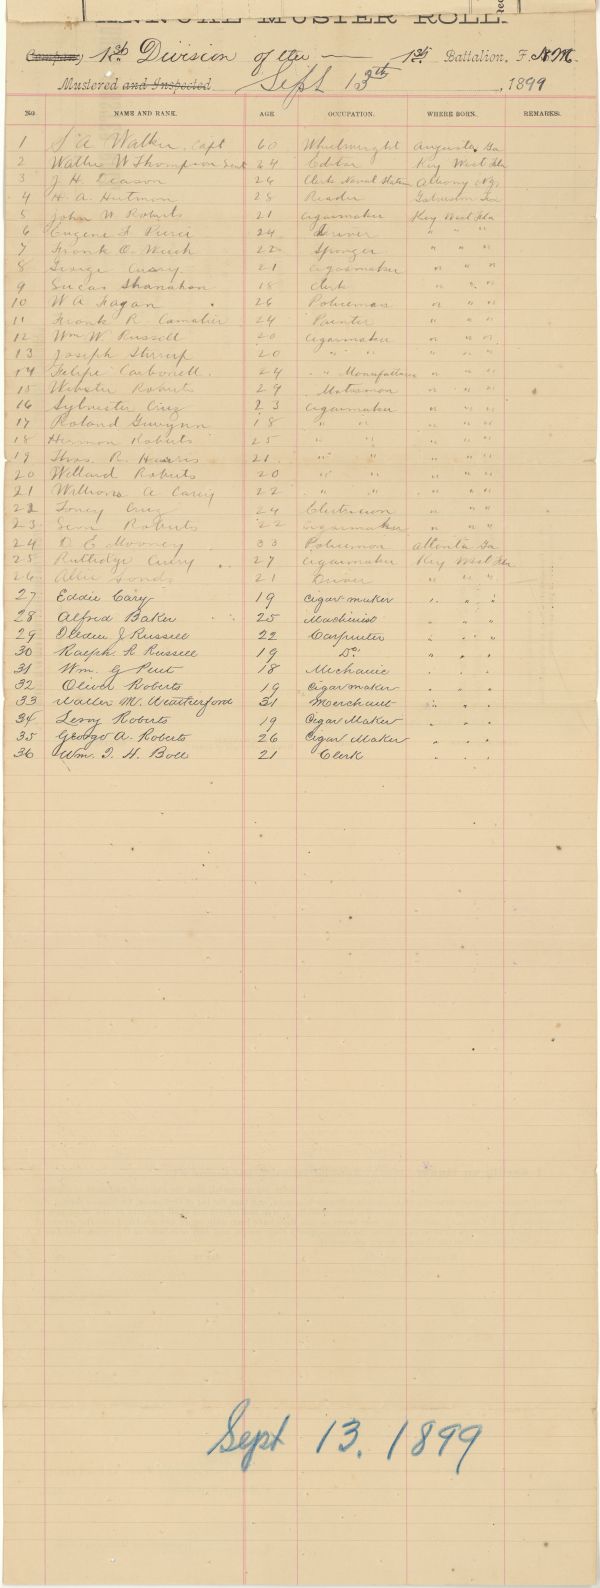 ANNUAL MUSTER ROLL.
Company 1st Division of the — 1st Battalion, F. N.M.
Mustered and Inspected Sept 13th, 1899
No. NAME AND RANK. AGE OCCUPATION. WHERE BORN. REMARKS.
1 Walker, Capt 60 Wheelwright Augusta Ga
2 Walter W Thompson 44 Editor Key West Fla
3 J. H. Deason 26 Clerk Naval Station Albany N.Y.
4 H. A. 28 Reader
5 John W Roberts 21 Cigarmaker Key West Fla
6 Eugene Pierce 24 Driver " " "
7 Frank O. 22 Sponger " " "
8 George Curry 21 Cigarmaker " " "
9 Lucas Shanahan 18 Clerk " " "
10 W A Fagan 26 Policeman " " "
11 Frank R. Camalier 24 Painter " " "
12 Wm W. Russell 20 Cigarmaker " " "
13 Joseph Stirrup 20 " " " " "
14 Felipe Carbonell 24 " Manufacturer " " "
15 Webster Roberts 29 " " "
16 Sylvester Cruz 23 Cigarmaker " " "
17 Roland Gwynn 18 " " " " "
18 Herman Roberts 25 " " " " "
19 Thos. R. Harris 21 " " " " "
20 Willard Roberts 20 " " " " "
21 William A Carey 22 " " " " "
22 Toney Cruz 24 Electrician " " "
23 Roberts 22 Cigarmaker " " "
24 D. E. Mooney 33 Policeman Atlanta Ga
25 Rutledge Curry 27 Cigarmaker Key West Fla
26 21 Driver " " "
27 Eddie Cary 19 Cigar maker " " "
28 Alfred Baker 25 Machinist " " "
29 J Russell 22 Carpenter " " "
30 Ralph R Russell 19 Do. " " "
31 Wm. G Pent 18 Mechanic " " "
32 Oliver Roberts 19 Cigar maker " " "
33 Walter M. Weatherford 31 Merchant " " "
34 Leroy Roberts 19 Cigar Maker " " "
35 George A. Roberts 26 Cigar Maker " " "
36 Wm. T. H. Boll 21 Clerk " " "
Sept 13. 1899